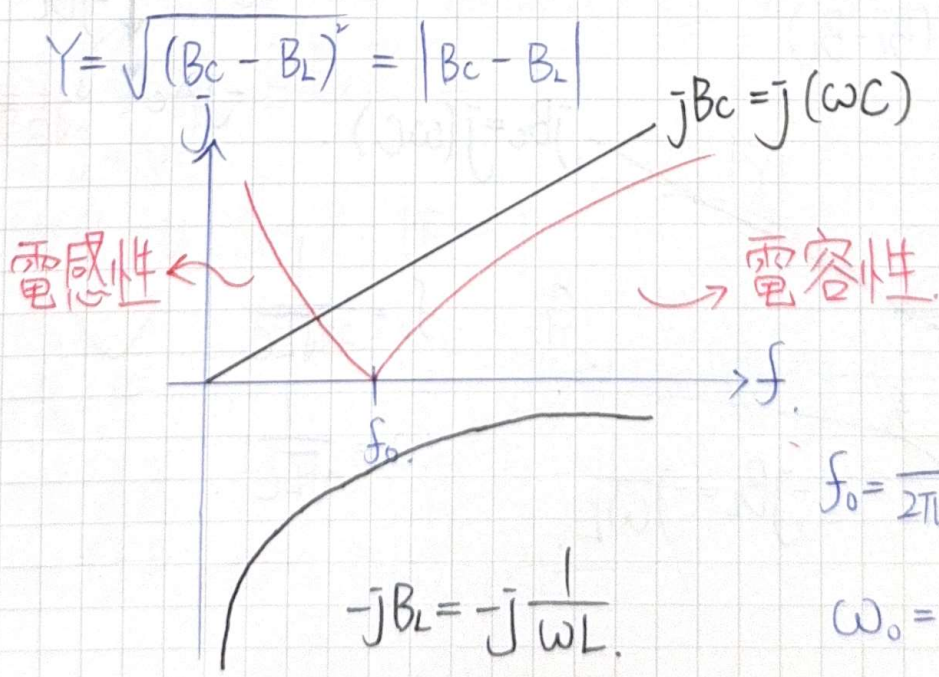 Y = √(Bc - BL)² = |Bc - BL|
j
jBc = j(ωC)
電感性
電容性.
f.
f₀.
f₀ = 2π
-jBL = -j 1/ωL.
ω₀ =